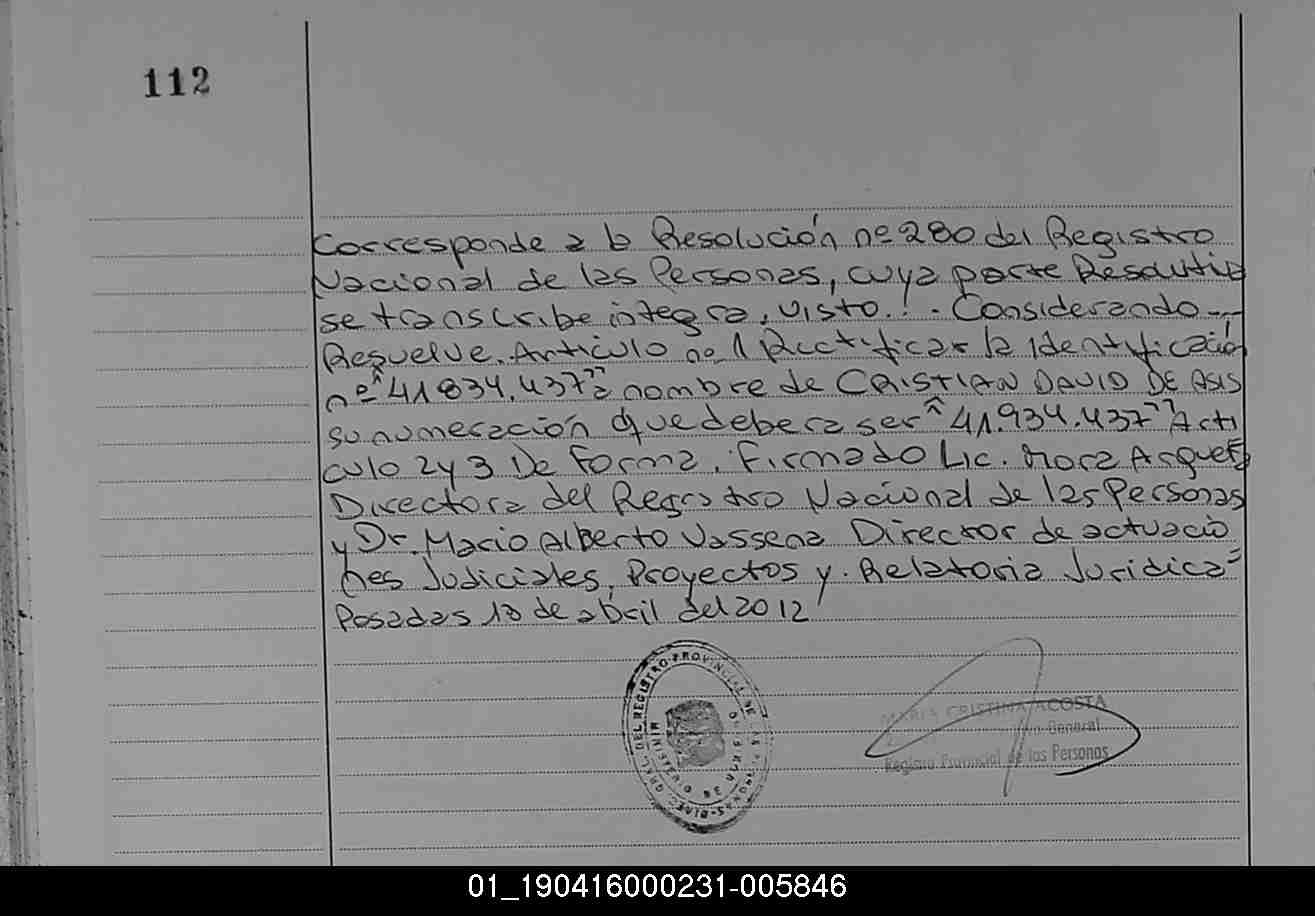 112
Corresponde a la Resolución nº 280 del Registro
Nacional de las Personas, cuya parte Resolutiva
se transcribe integra, visto.!. Considerando
Resuelve. Articulo nº 1 Rectificar la Identificación
nº "41834.437" a nombre de CRISTIAN DAVID DE ASIS
su numeración que debera ser "41.934.437" Arti
culo 2 y 3 De forma. Firmado Lic. Mora Arqueta
Directora del Registro Nacional de las Personas
y Dr. Mario Alberto Vassena Director de actuacio
nes Judiciales, Proyectos y. Relatoria Juridica=
Posadas 18 de abril del 2012
DIREC. GRAL. DEL REGISTRO PROVINCIAL DE LAS PERSONAS
MARIA CRISTINA ACOSTA
General
Registro Provincial de las Personas
01_190416000231-005846